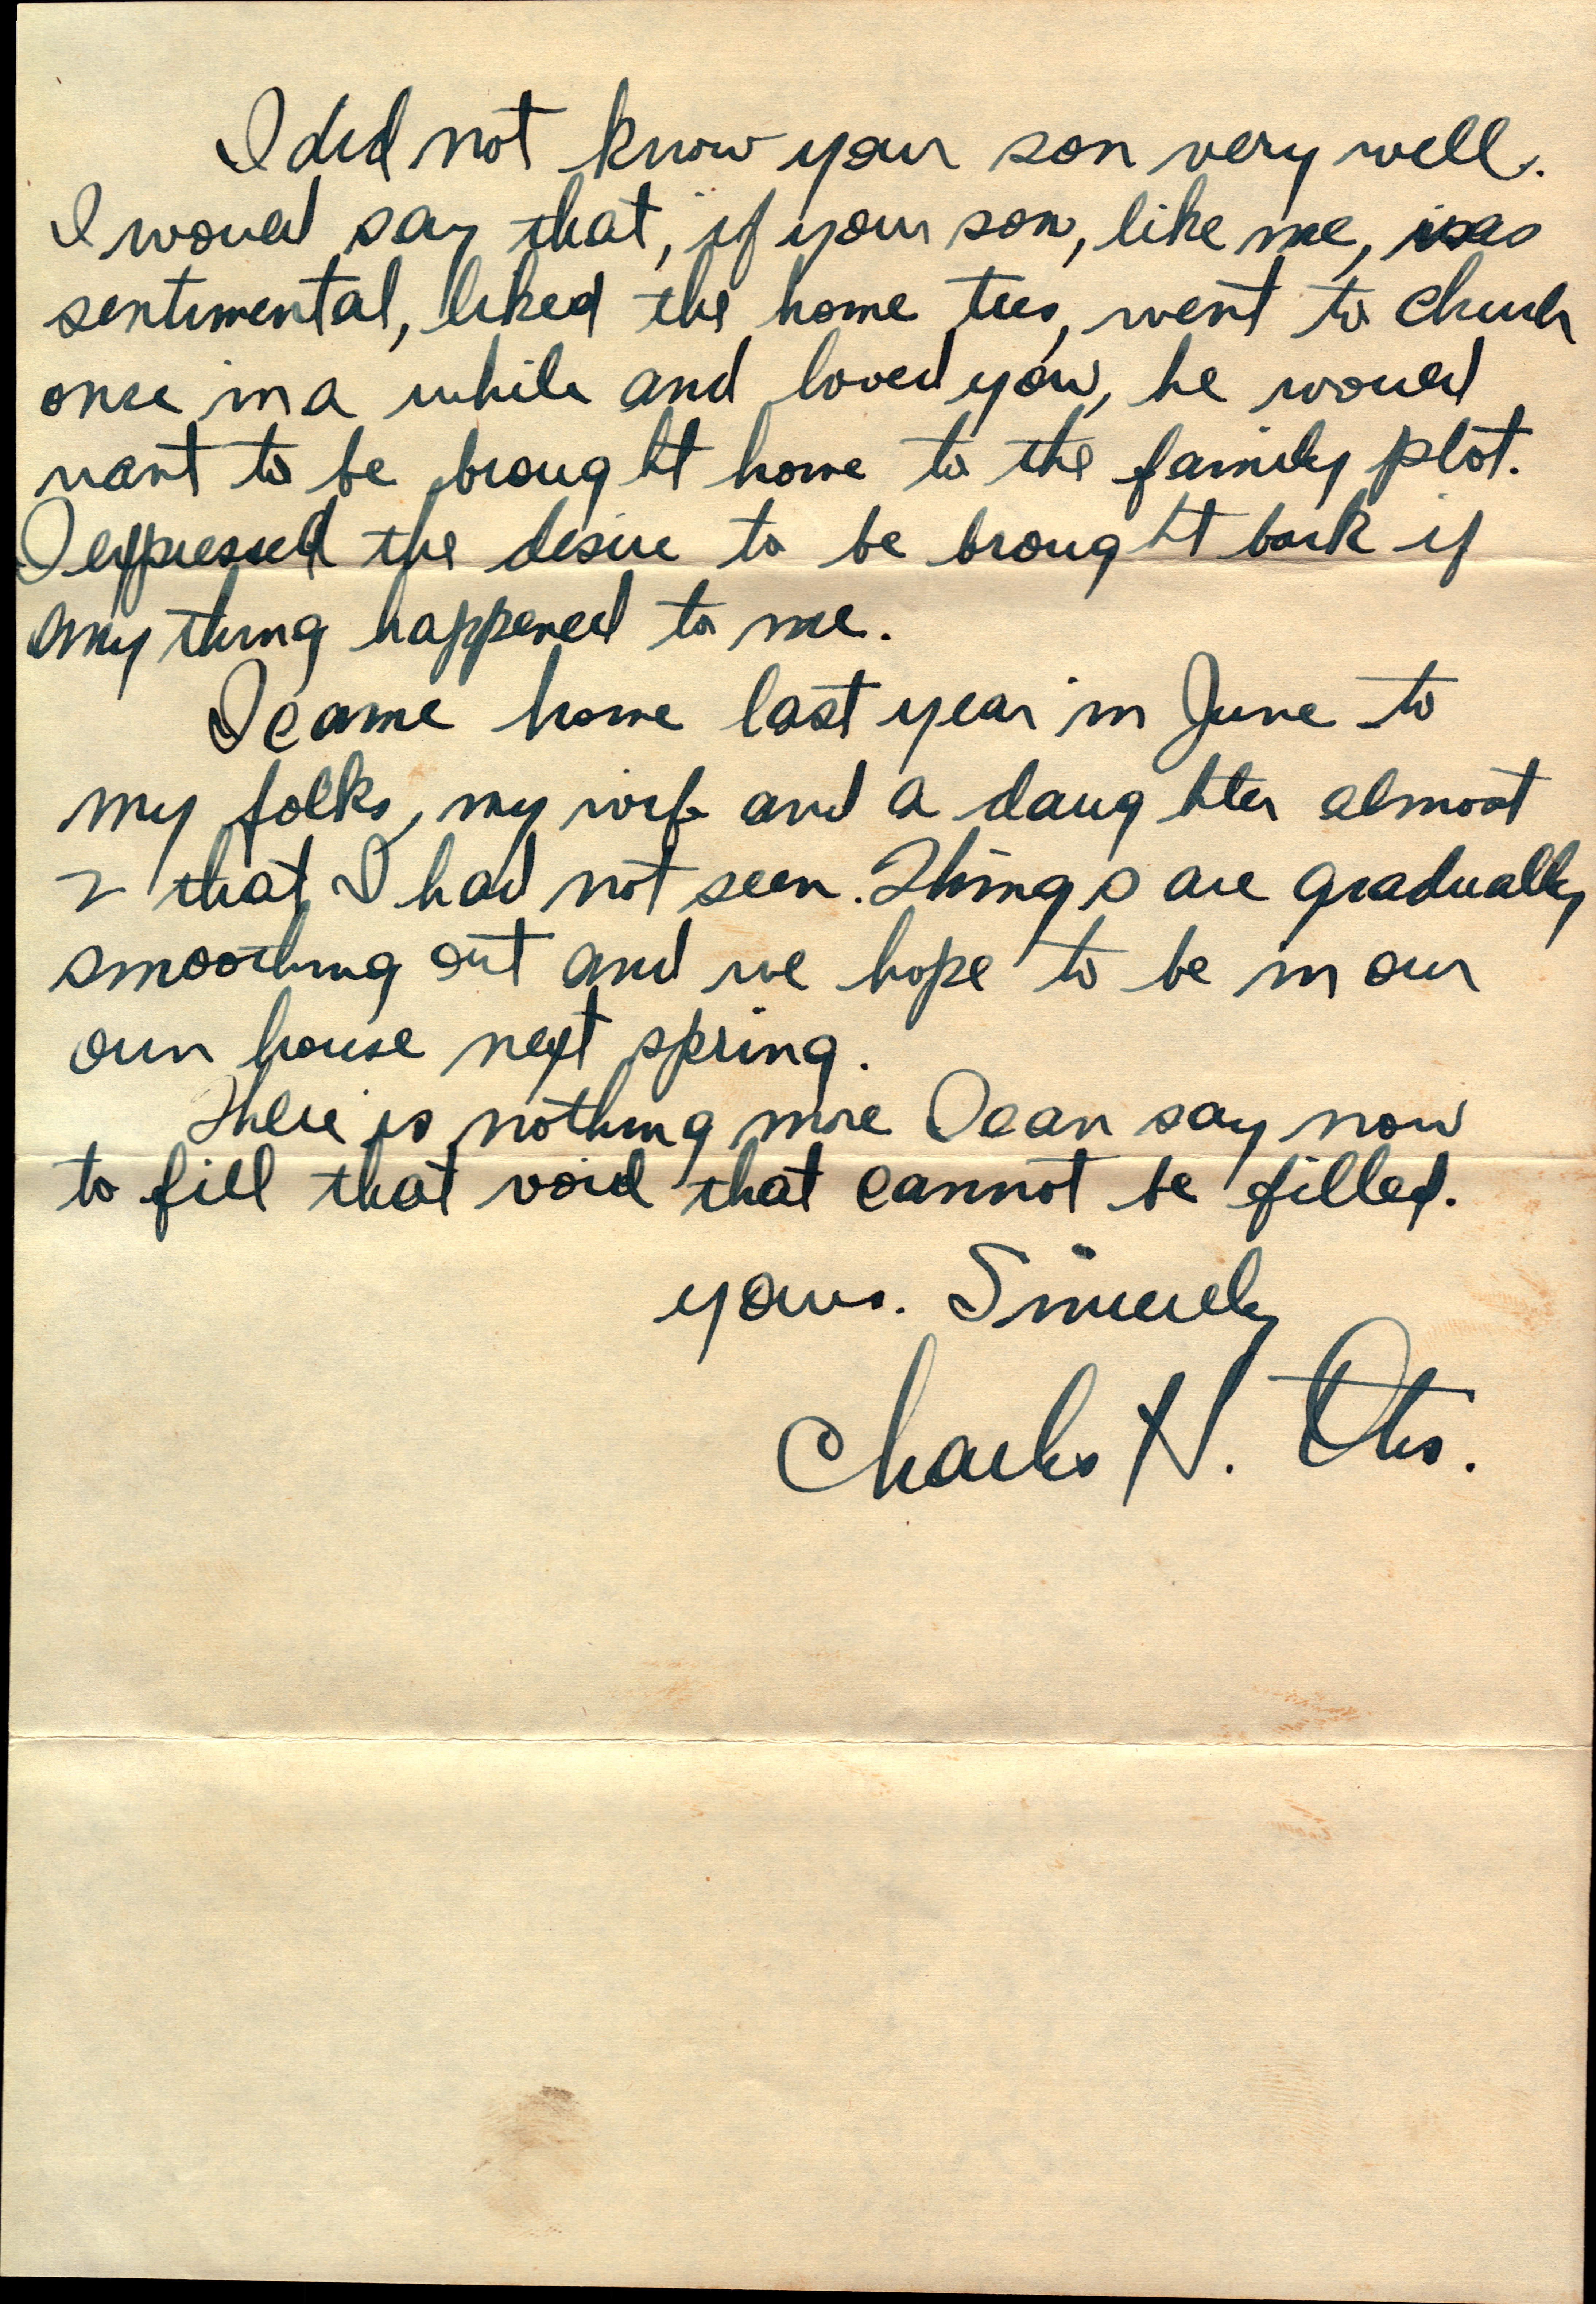 I did not know your son very well.
I would say that, if your son, like me, was
sentimental, liked the home ties, went to church
once in a while and loved you, he would
want to be brought home to the family plot.
I expressed the desire to be brought back if
anything happened to me.
I came home last year in June to
my folks, my wife and a daughter almost
2 that I had not seen. Things are gradually
smoothing out and we hope to be in our
own house next spring.
There is nothing more I can say now
to fill that void that cannot be filled.
yours. Sincerely
Charles H. Otis.